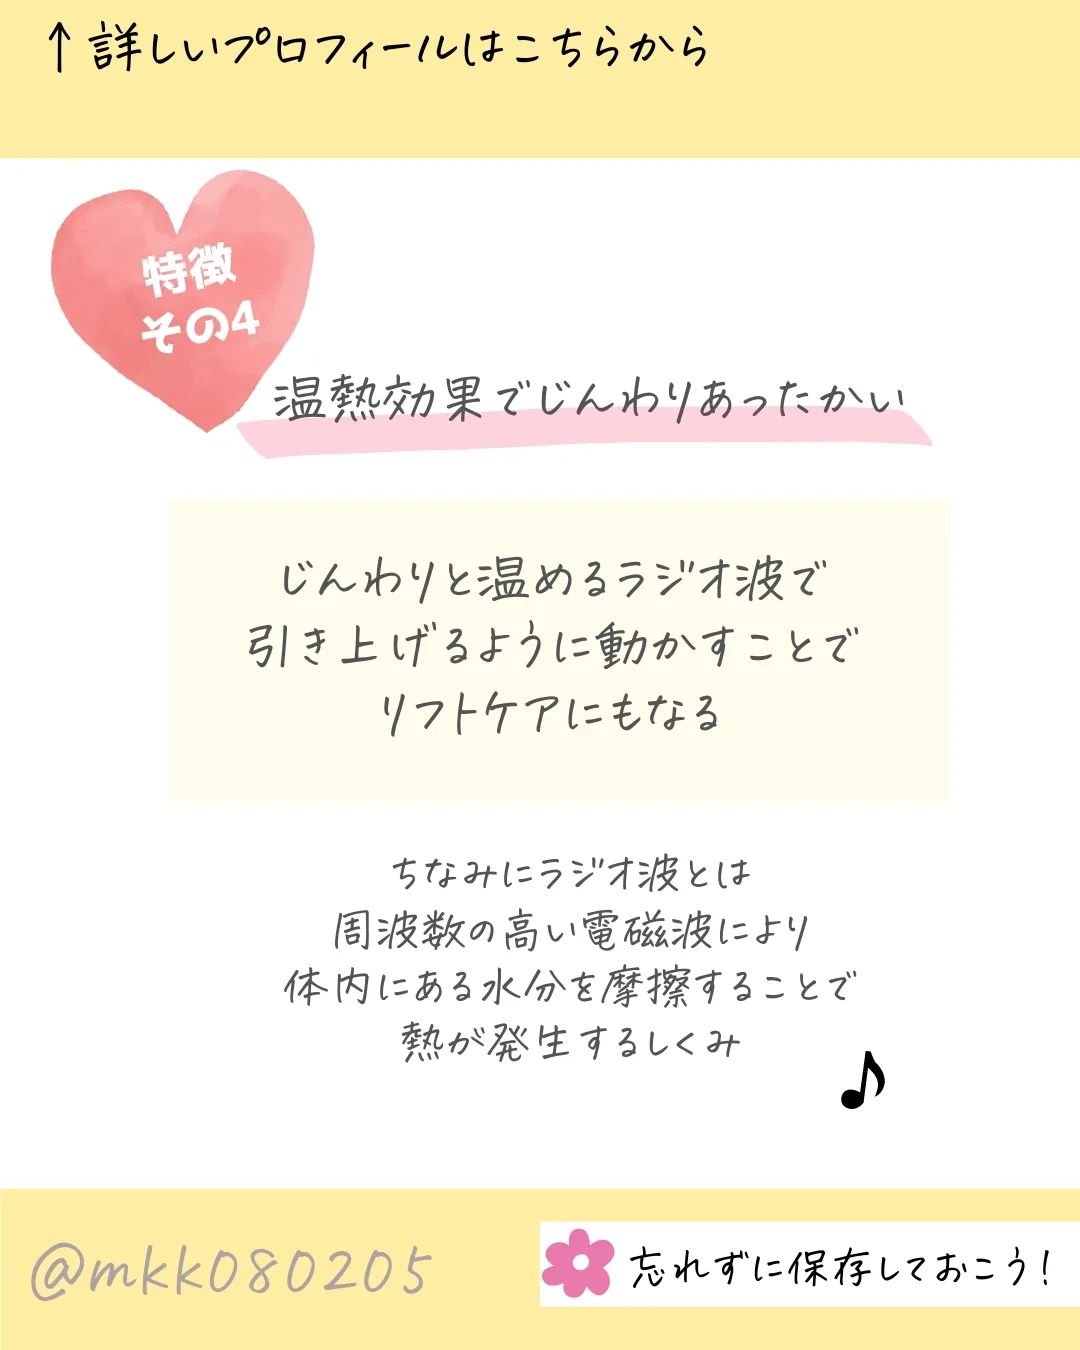 ↑詳しいプロフィールはこちらから
特徴
その4
温熱効果でじんわりあったかい
じんわりと温めるラジオ波で
引き上げるように動かすことで
リフトケアにもなる
ちなみにラジオ波とは
周波数の高い電磁波により
体内にある水分を摩擦することで
熱が発生するしくみ
@mkk080205
忘れずに保存しておこう!